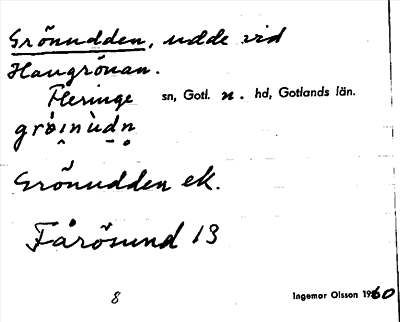 Grönudden, udde vid
Haugrönan.
Fleringe sn, Gotl. n. hd, Gotlands län.
Grönudden ek.
Fårösund 13
8 Ingemar Olsson 1960